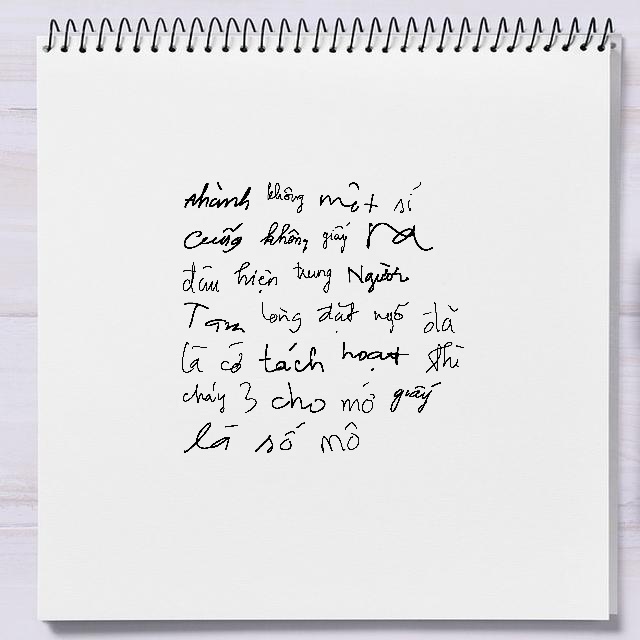 nhành không một sí
cuống không giấy ra
đâu hiện trung Người
Tam lòng đặt ngõ đà
là cớ tách hoạt thì
cháy 3 cho mớ giấy
là số mô